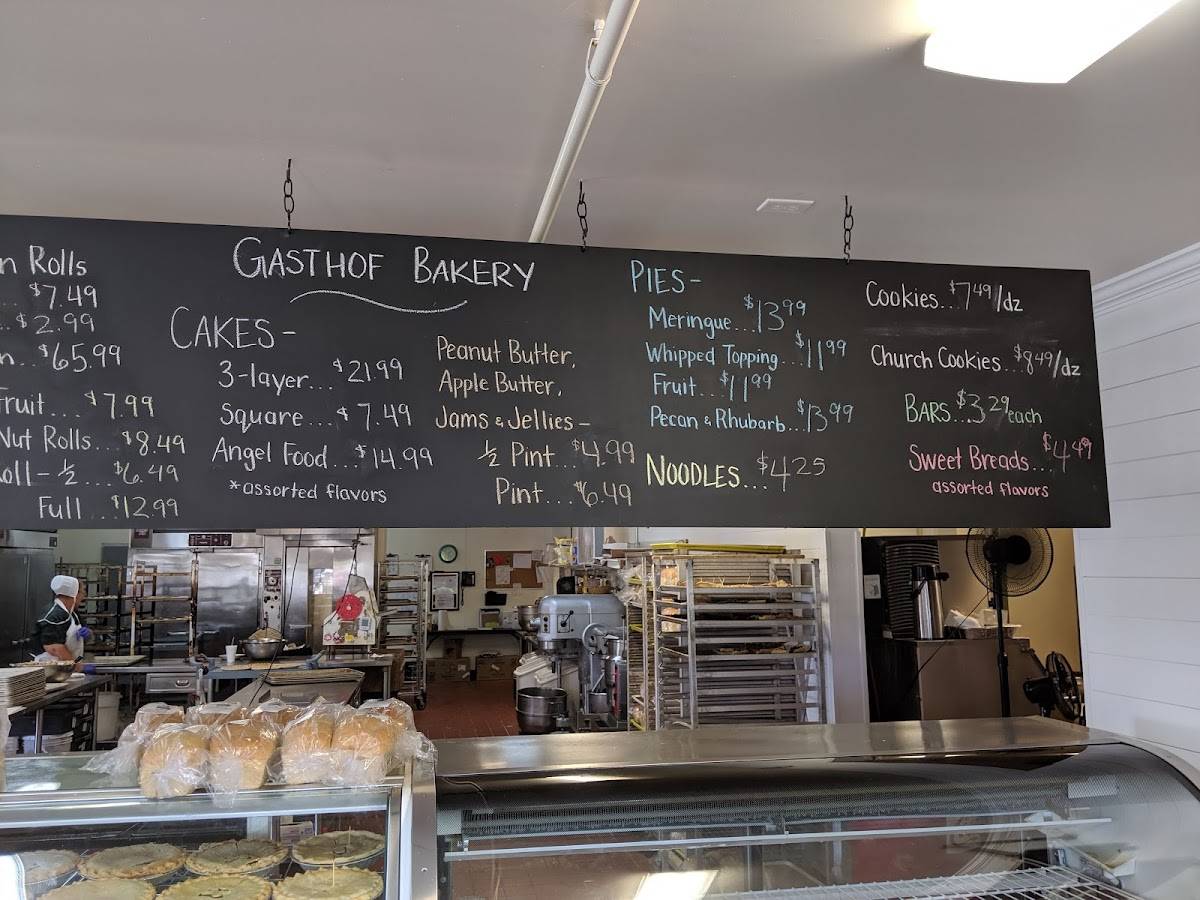 GASTHOF BAKERY
n Rolls
... $7.49
.. $2.99
n... $65.99
Fruit.... $7.99
Nut Rolls... $8.49
oll - ½ ... $6.49
Full ... $12.99
CAKES -
3-layer... $21.99
Square.... $7.49
Angel Food... $14.99
*assorted flavors
Peanut Butter,
Apple Butter,
Jams & Jellies -
½ Pint... $4.99
Pint.... $6.49
PIES -
Meringue... $13.99
Whipped Topping... $11.99
Fruit... $11.99
Pecan & Rhubarb... $13.99
NOODLES... $4.25
Cookies... $7.49/dz
Church Cookies... $8.49/dz
BARS... $3.29 each
Sweet Breads... $4.49
assorted flavors